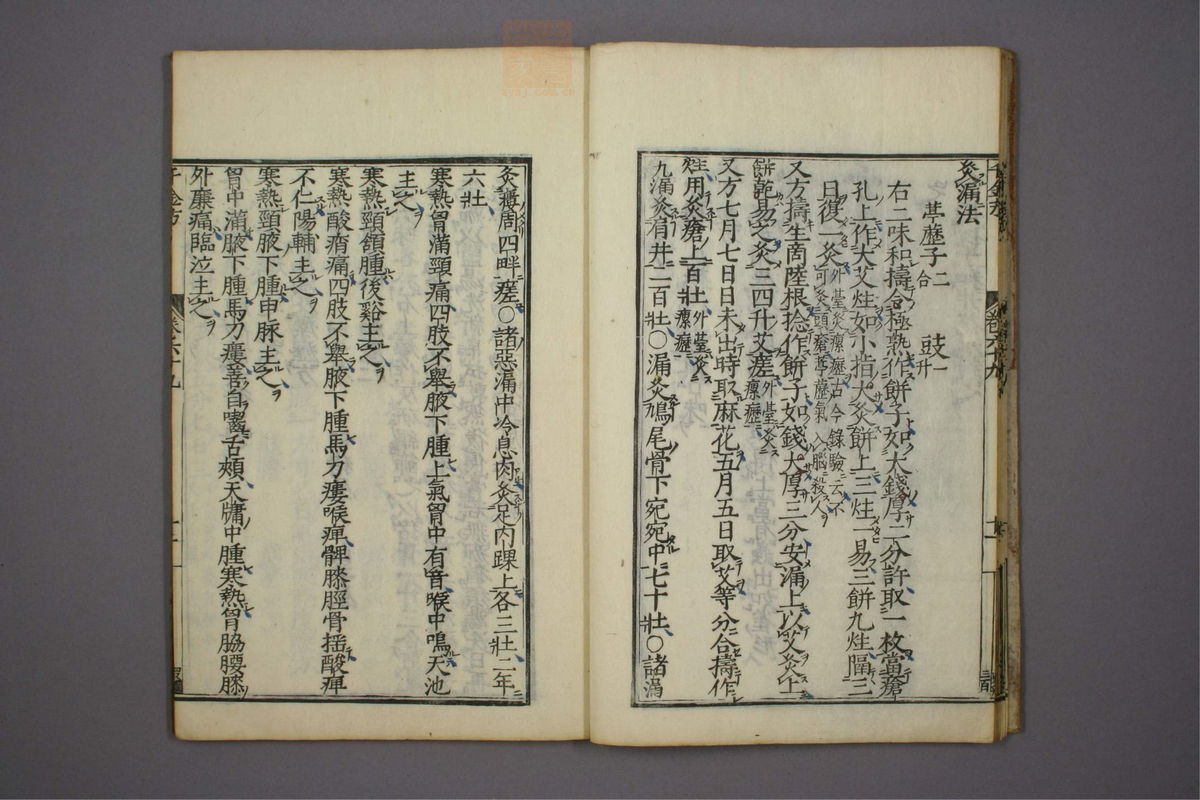 灸漏法
葶藶子二合 豉一升
右二味和擣令極熟作餅子如大錢厚二分許取一枚當瘡
孔上作大艾炷如小指大灸餅上三炷一易三餅九炷隔三
日復一灸外臺灸瘰癧古今錄驗云不可灸頭瘡葶藶氣入腦殺人
又方擣生商陸根捻作餅子如錢大厚三分安漏上以艾灸上
餅乾易之灸三四升艾瘥外臺灸瘰癧
又方七月七日日未出時取麻花五月五日取艾等分合擣作
炷用灸瘡上百壯外臺灸瘰癧
九漏灸肩井二百壯○漏灸鳩尾骨下宛宛中七十壯○諸漏
灸瘻周四畔瘥○諸惡漏中冷息肉灸足內踝上各三壯二年
六壯
寒熱胷滿頸痛四肢不舉腋下腫上氣胷中有音喉中鳴天池
主之
寒熱頸頷腫後谿主之
寒熱酸痟痛四肢不舉腋下腫馬刀瘻喉痺髀膝脛骨搖酸痺
不仁陽輔主之
寒熱頸腋下腫申脉主之
胷中滿腋下腫馬刀瘻善自嚙舌頰天牖中腫寒熱胷脇腰膝
外廉痛臨泣主之